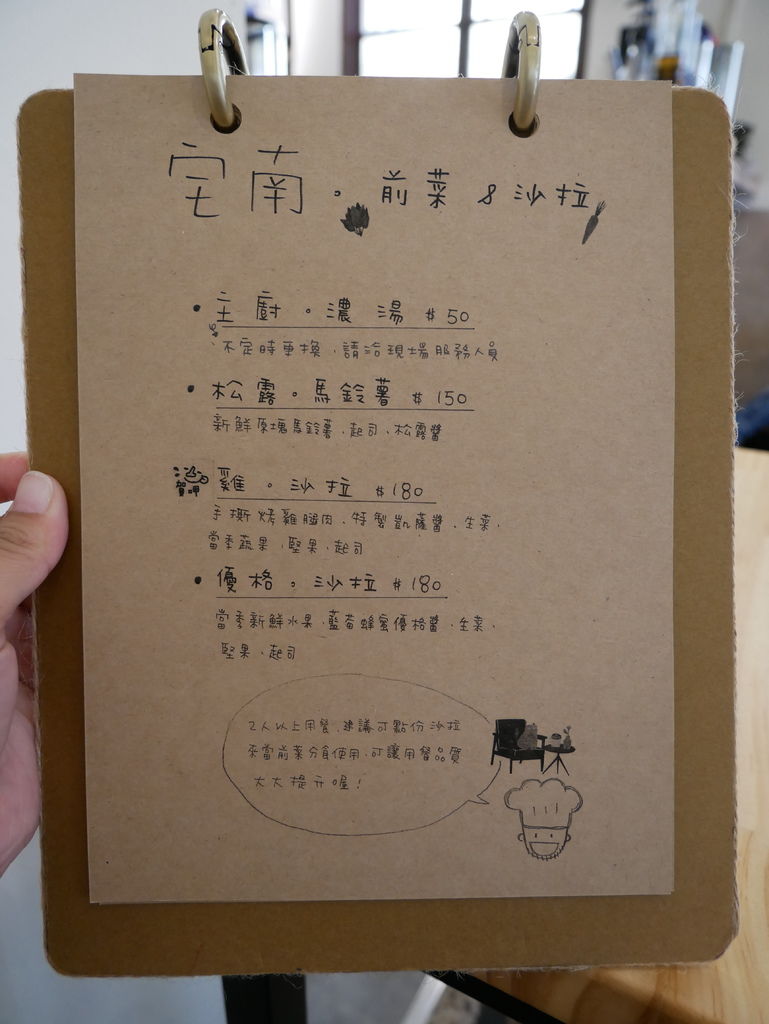 宅南。前菜&沙拉
•主廚。濃湯 $50
不定時更換、請洽現場服務人員
•松露。馬鈴薯 $150
新鮮原塊馬鈴薯、起司、松露醬
雞。沙拉 $180
手撕烤雞腿肉、特製凱薩醬、生菜、
當季蔬果、堅果、起司
•優格。沙拉 $180
當季新鮮水果、藍莓蜂蜜優格醬、生菜、
堅果、起司
2人以上用餐、建議可點份沙拉
來當前菜分食使用、可讓用餐品質
大大提升喔!